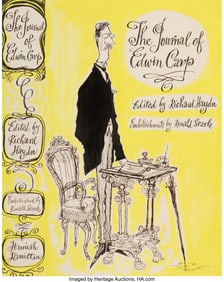 The Journal
of
Edwin Carp
Edited by
Richard
Haydn
Embellished by
Ronald Searle
Hamish
Hamilton
The Journal of
Edwin Carp
Edited by Richard Haydn
Embellishments by Ronald Searle
Imaged by Heritage Auctions, HA.com